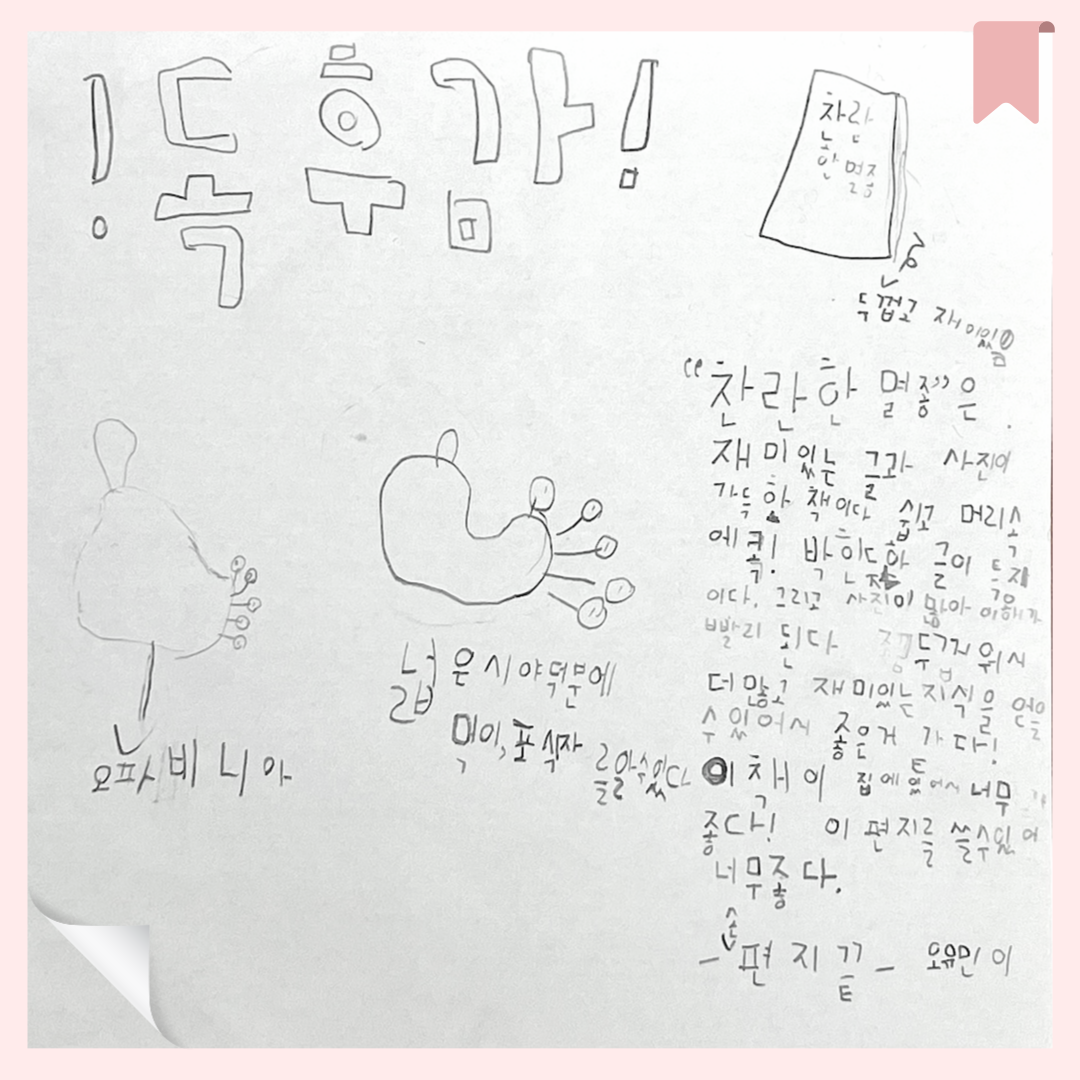 !독후감!
찬란
한 멸종
두껍고 재미있음
"찬란한 멸종"은
재미있는 글과 사진이
가득한 책이다 쉽고 머리속
에 콕! 박힌다 글이
이다. 그리고 사진이 많아 이해가
빨리 된다 두꺼워서
더 많고 재미있는 지식을 얻을
수 있어서 좋은거 가다!
이 책이 집에 있어서 너무
좋다! 이 편지를 쓸수있어
너무좋다.
- 편지 끝 - 오유민이
오파비니아
넓은시야덕분에
먹이, 포식자
를알수있다